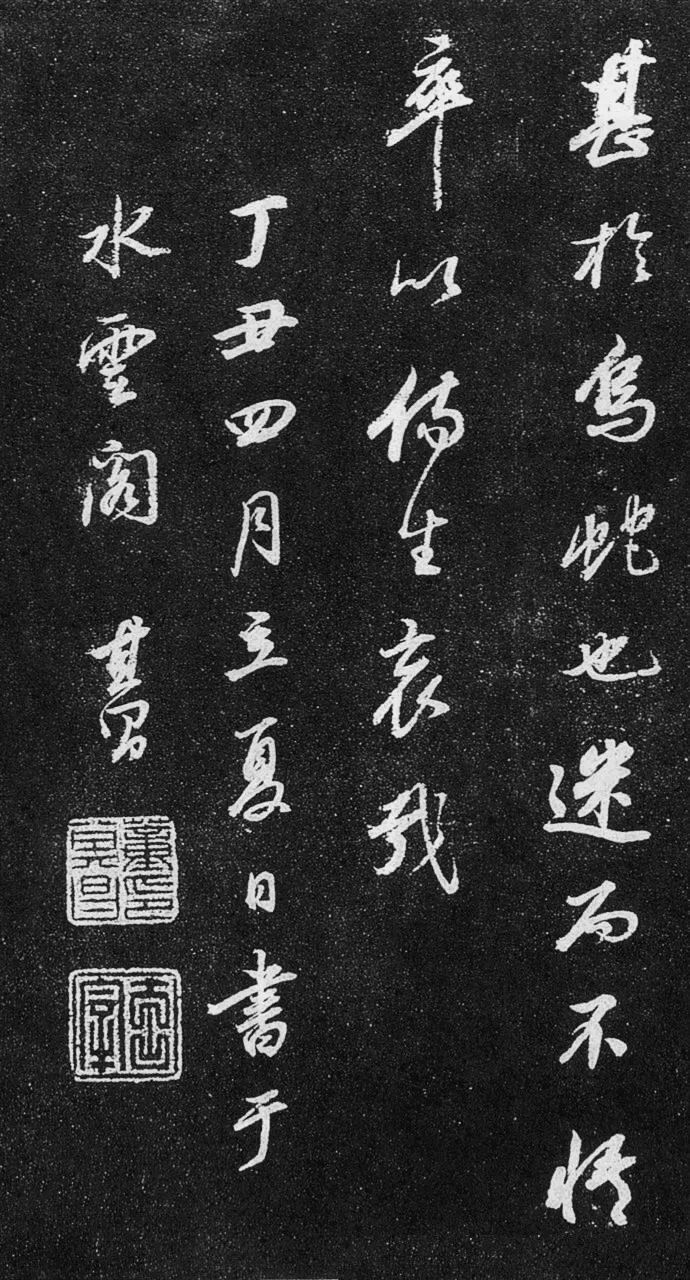 甚於烏虵也迷而不悟
率以傷生哀哉
丁丑四月立夏日書于
水雲閣 其昌